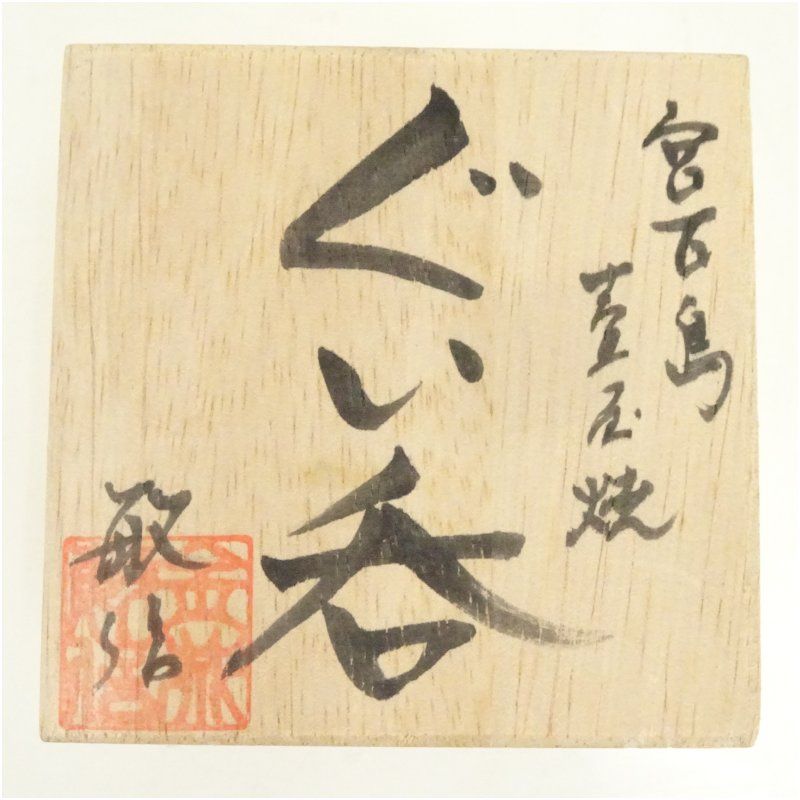 宮古島
壺屋焼
ぐい呑
敏治